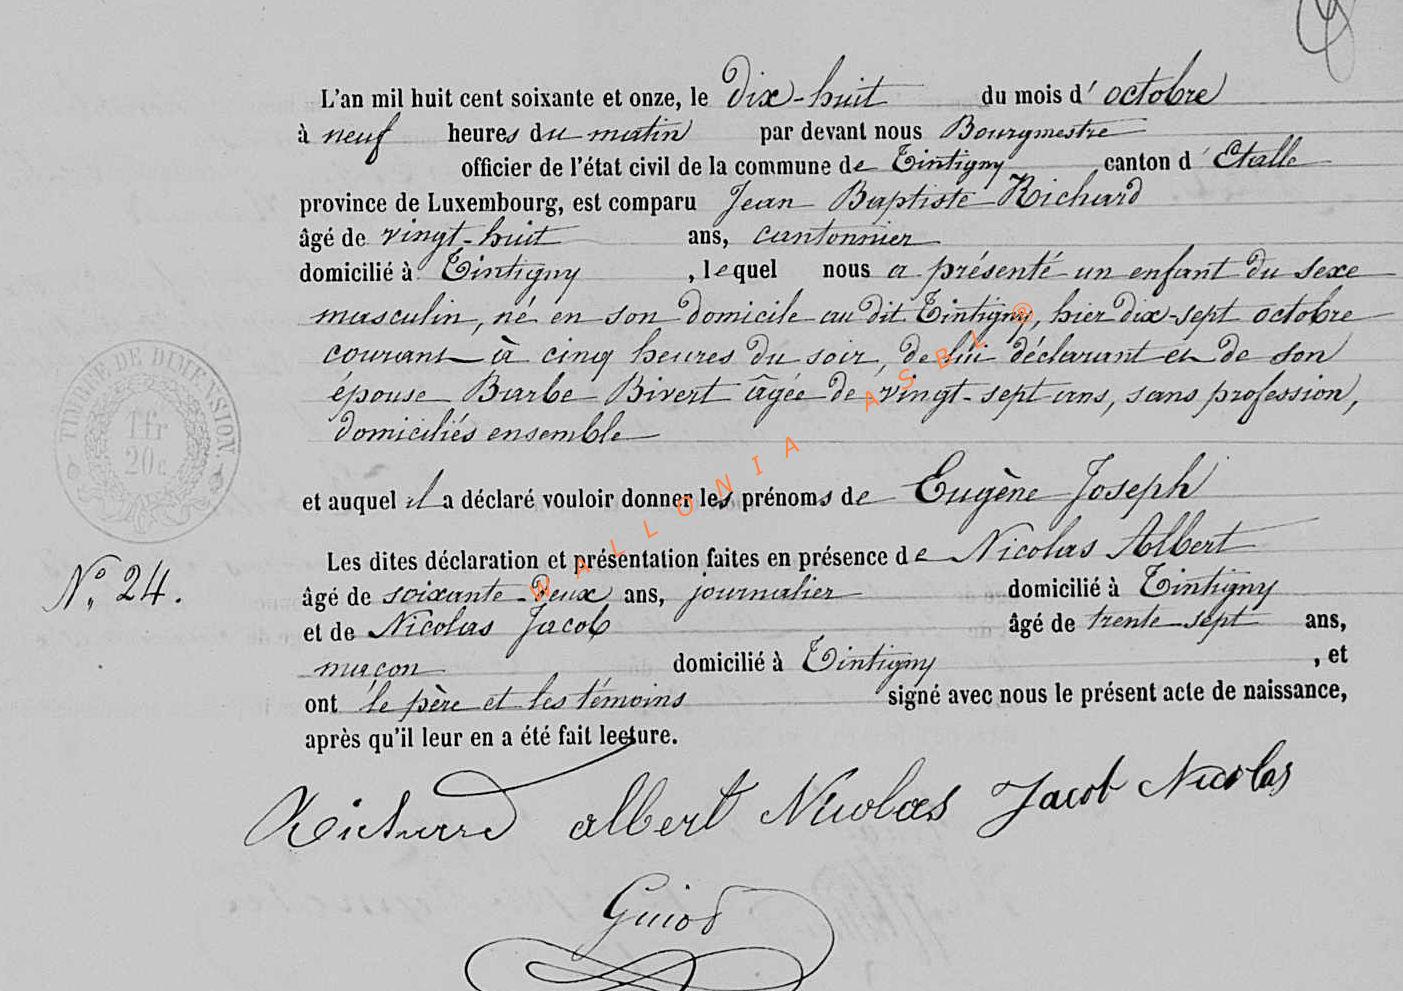 L'an mil huit cent soixante et onze, le dix-huit du mois d'octobre
à neuf heures du matin par devant nous Bourgmestre
officier de l'état civil de la commune de Tintigny canton d'Etalle
province de Luxembourg, est comparu Jean Baptiste Richard
âgé de vingt-huit ans, cantonnier
domicilié à Tintigny, lequel nous a présenté un enfant du sexe
masculin, né en son domicile au dit Tintigny, hier dix-sept octobre
courant à cinq heures du soir, de lui déclarant et de son
épouse Barbe Bivert âgée de vingt-sept ans, sans profession,
domiciliés ensemble
et auquel il a déclaré vouloir donner les prénoms de Eugène Joseph
Les dites déclaration et présentation faites en présence de Nicolas Albert
N° 24.
âgé de soixante-deux ans, journalier domicilié à Tintigny
et de Nicolas Jacob âgé de trente-sept ans,
maçon domicilié à Tintigny, et
ont le père et les témoins signé avec nous le présent acte de naissance,
après qu'il leur en a été fait lecture.
Richard albert Nicolas Jacob Nicolas
Guiot
TIMBRE DE DIMENSION
1 fr
20 c
WALLONIA ASBL ®